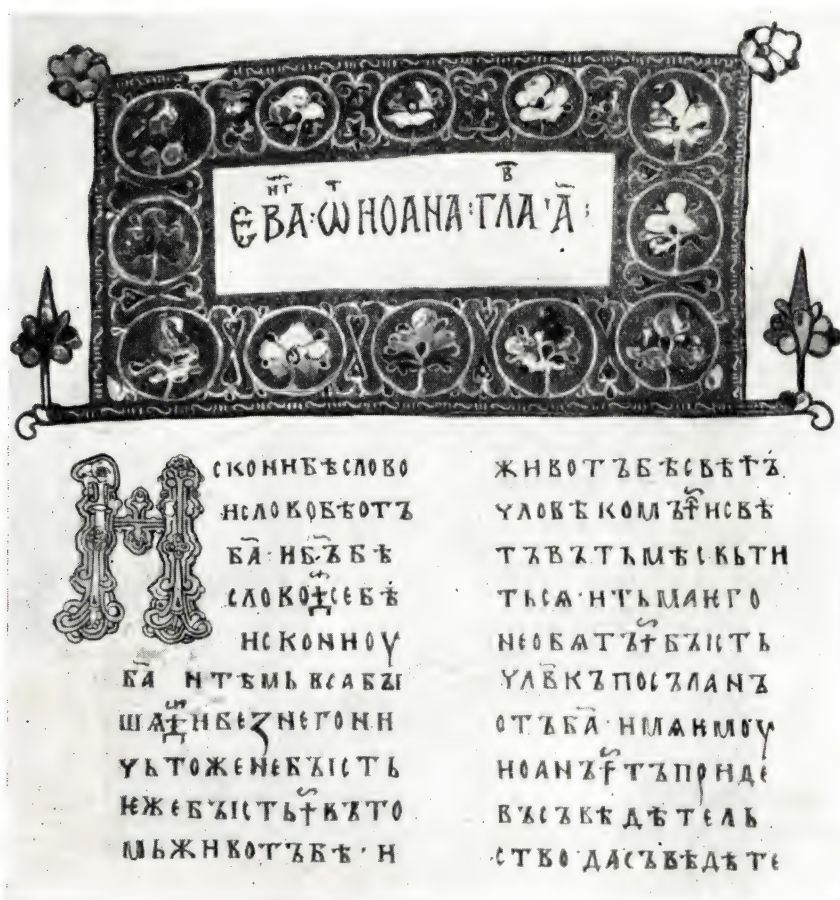 ЄВАⷩ҇ⷢ·Ѿ ИОАНА:ГЛАⷡ҇·А҃:
ИСКОНИБѢСЛОВО
ИСЛОВОБѢОТЪ
БА҃·ИБ҃ЪБѢ
СЛОВО☦СЕБѢ
ИСКОНИОУ
БА҃ ИТѢМЬВСАБꙐ
ШѦ☦ИБЕЗНЕГОНИ
ЧЬТОЖЕНЕБꙐСТЬ
ѤЖЕБꙐСТЬ†ВЪТО
МЬЖИВОТЪБѢ·И
ЖИВОТЪБѢСВѢТЪ
ЧЛОВѢКОМЪ†ИСВѢ
ТЪВЪТЬМѢСВЬТИ
ТЬСѦ·ИТЬМАѤГО
НЕОБѦТЪ†БꙐСТЬ
ЧЛВ҃КЪПОСЪЛАНЪ
ОТЪБА҃·ИМѦѤМОУ
ИОАНЪ†ТЪПРИДЕ
ВЪСЪВѢДѢТЕЛЬ
СТВО·ДАСЪВѢДѢТЕ